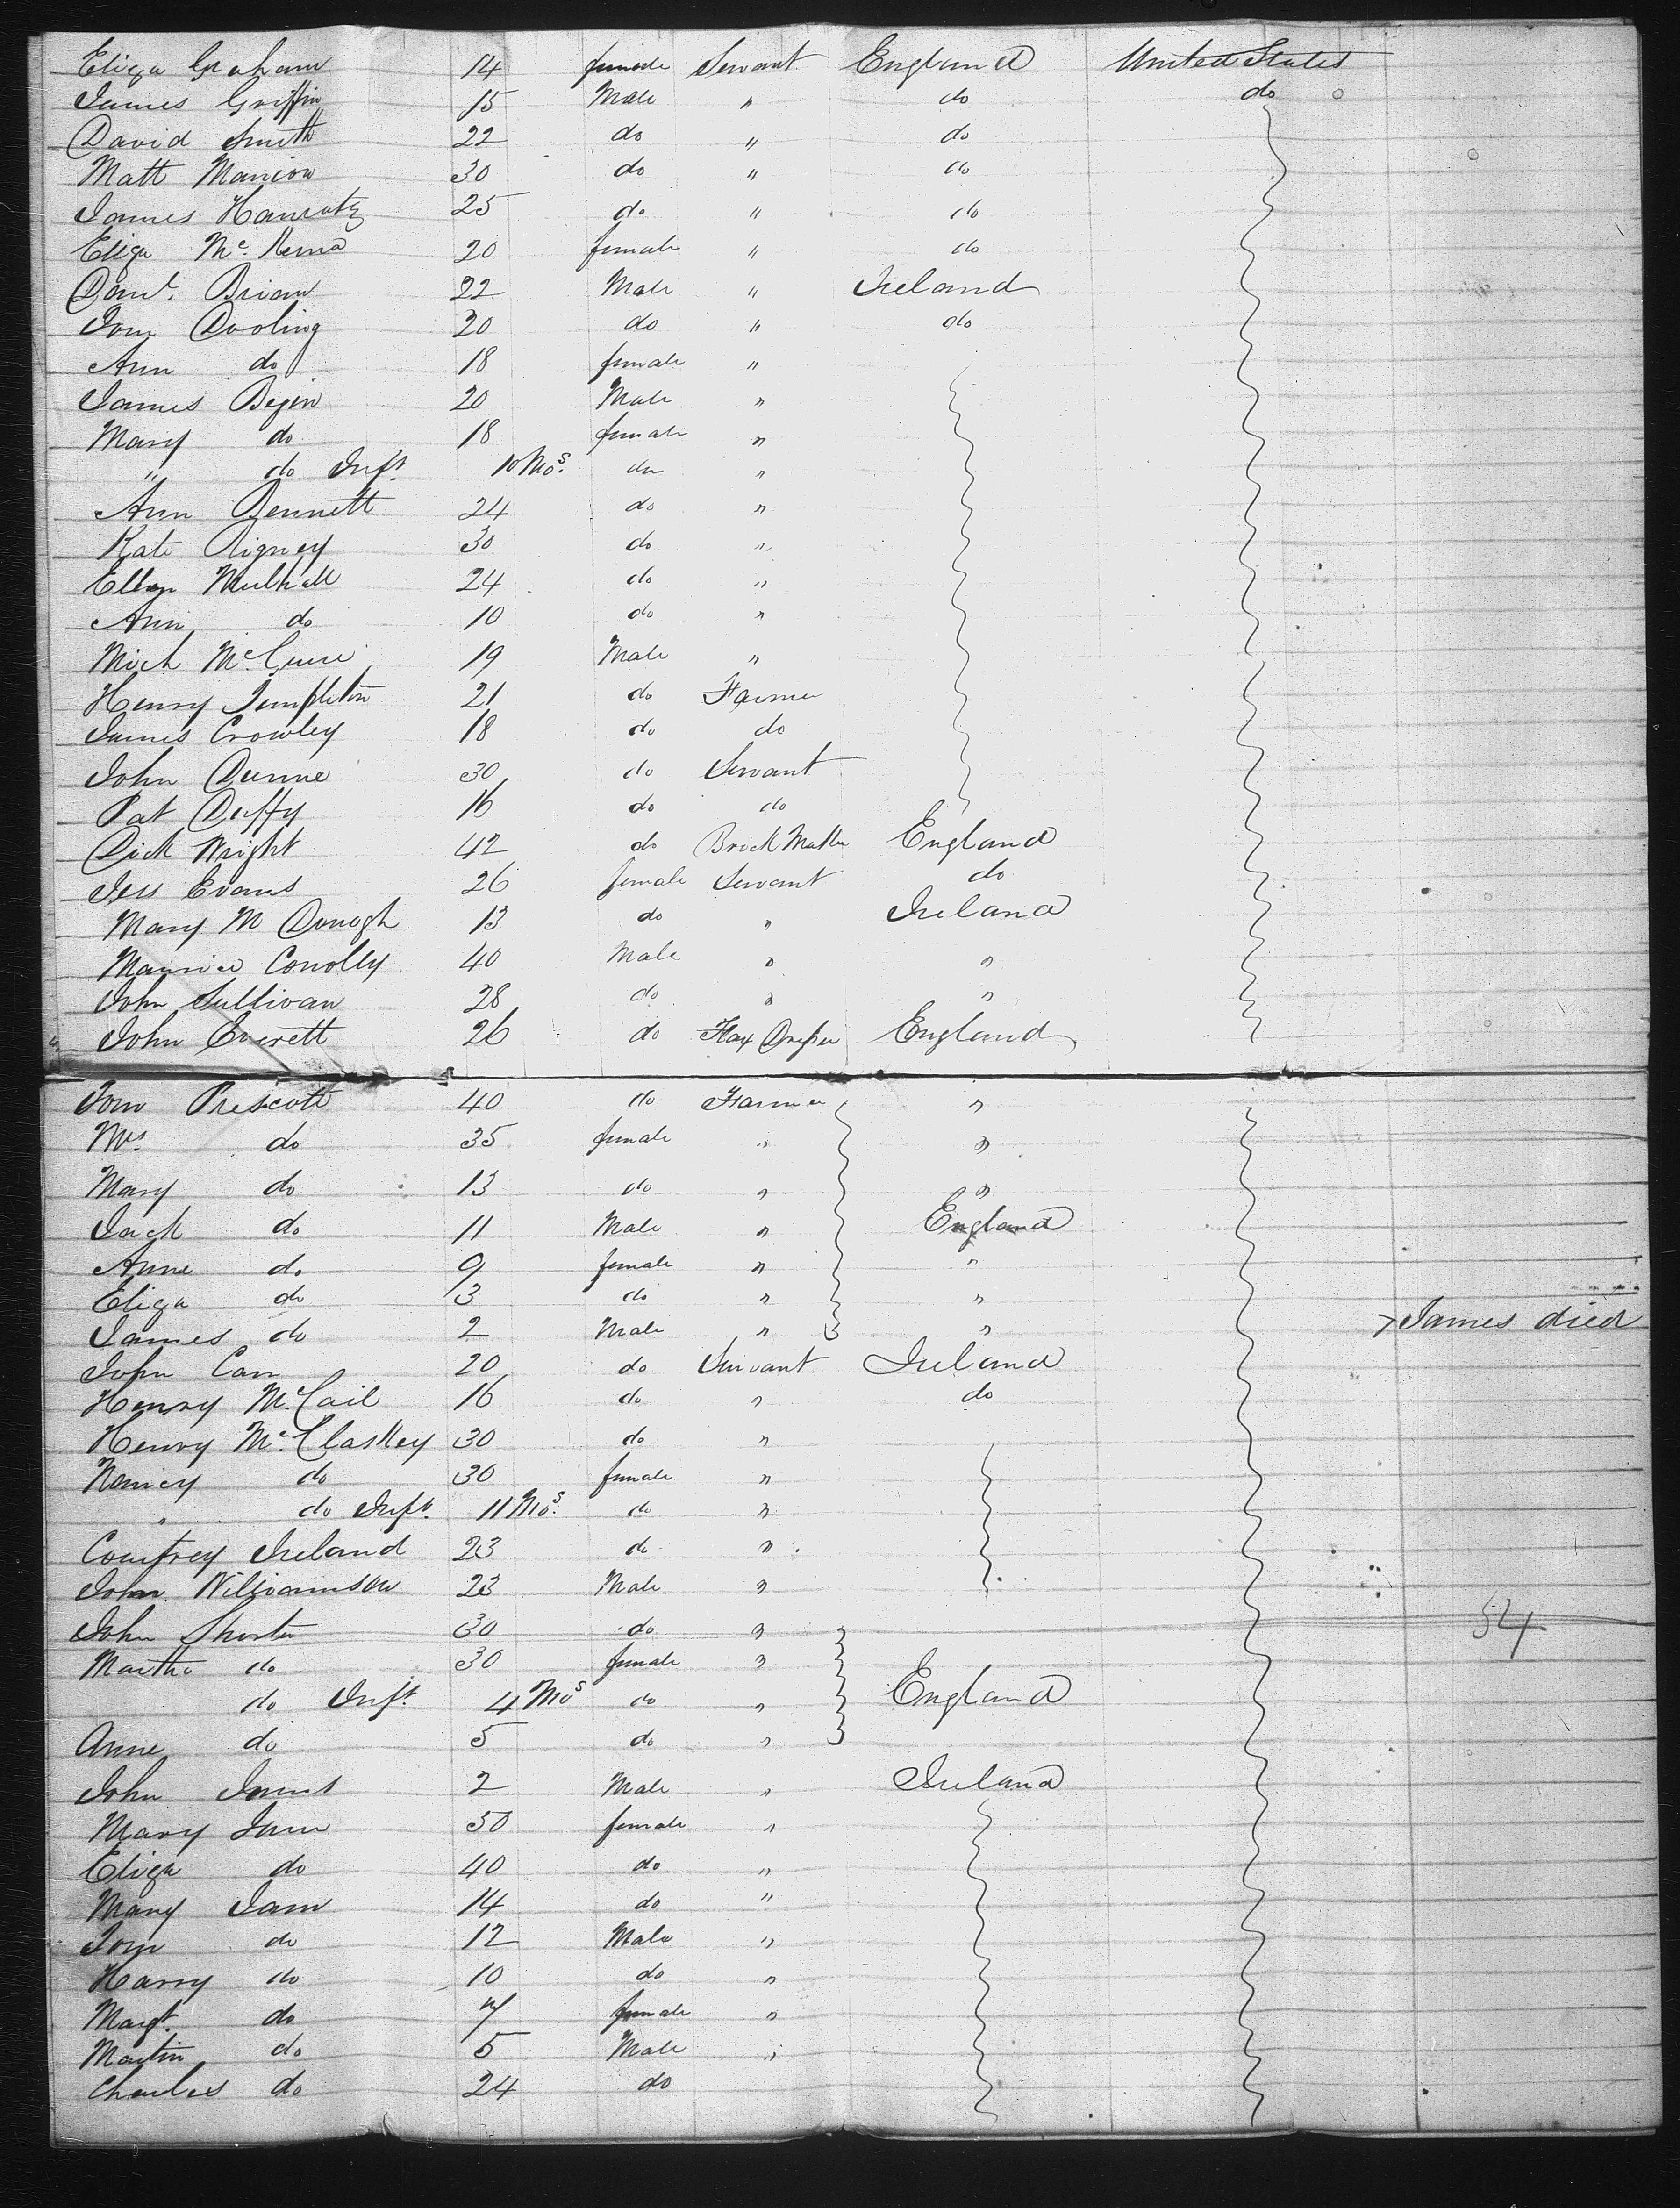 Eliza Graham 14 female Servant England United States
James Griffin 15 Male " do do
David Smith 22 do " do
Matt Manion 30 do " do
James Hanratty 25 do " do
Eliza Mc. Kenna 20 female " do
Danl. Brian 22 Male " Ireland
Tom Dooling 20 do " do
Ann do 18 female "
James Begin 20 Male "
Mary do 18 female "
" do Inft. 10 Mos. do "
Ann Bennett 24 do "
Kate Rigney 30 do "
Ellen Mulhall 24 do "
Ann do 10 do "
Mich McGuire 19 Male "
Henry Templeton 21 do Farmer
James Crowley 18 do do
John Dunne 30 do Servant
Pat Duffy 16 do do
Dick Wright 42 do Brick Maker England
Jess Evans 26 female Servant do
Mary M Donogh 13 do " Ireland
Maurice Conolly 40 Male " "
John Sullivan 28 do " "
John Everett 26 do Flax Dresser England
Tom Prescott 40 do Farmer "
Mrs do 35 female " "
Mary do 13 do " "
Jack do 11 Male " England
Anne do 9 female " "
Eliza do 3 do " "
James do 2 Male " " James died
John Carr 20 do Servant Ireland
Henry Mc.Cail 16 do " do
Henry Mc.Claskey 30 do "
Nancy do 30 female "
" do Inft. 11 Mos. do "
Ireland 23 do "
John Williamson 23 Male "
John Shorter 30 do " 54
Martha do 30 female "
do Inft. 4 Mos do " England
Anne do 5 do "
John 2 Male " Ireland
Mary 50 female "
Eliza do 40 do "
Mary 14 do "
Tom do 12 Male "
Harry do 10 do "
Margt. do 7 female "
Martin do 5 Male "
Charles do 24 do